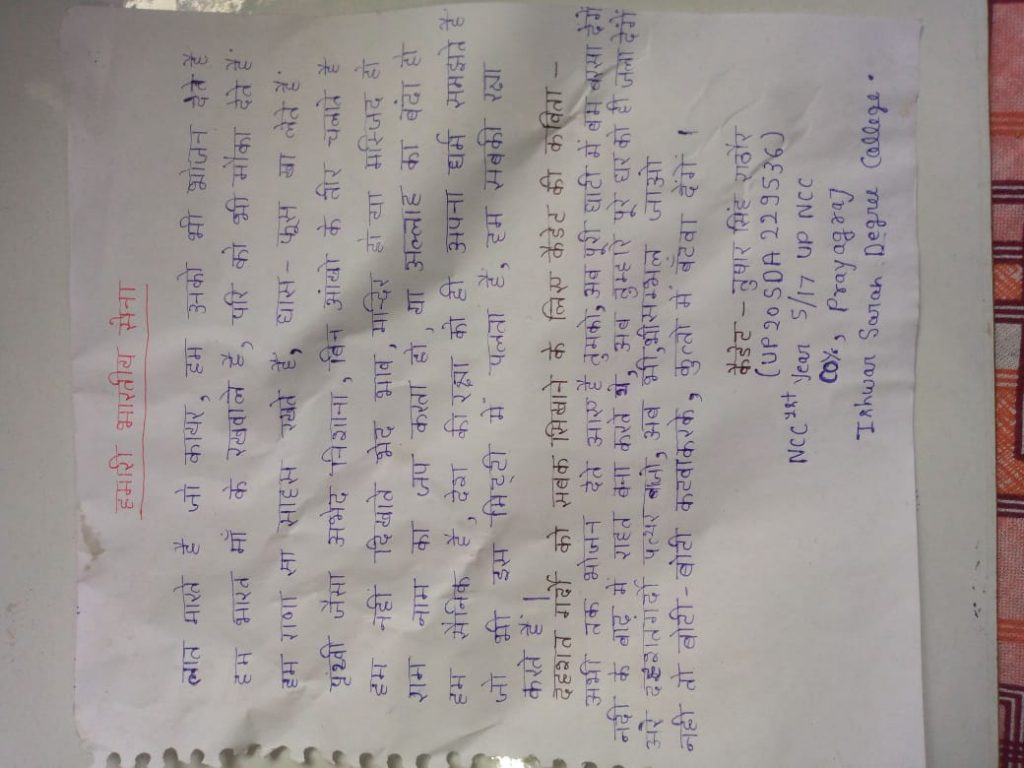 हमारी भारतीय सेना
लात मारते हैं जो कायर, हम उनको भी भोजन देते हैं
हम भारत माँ के रखवाले हैं, परि को भी मौका देते हैं
हम राणा सा साहस रखते हैं, घास-फूस खा लेते हैं
पृथ्वी जैसा अभेद निशाना, बिन आंखो के तीर चलाते हैं
हम नही दिखाते भेद भाव, मन्दिर हो या मस्जिद हो
राम नाम का जाप करता हो, या अल्लाह का बंदा हो
हम सैनिक हैं, देश की रक्षा को ही अपना धर्म समझते हैं
जो भी इस मिट्टी में पलता हैं, हम सबकी रक्षा
करते हैं।
दहशत गर्दो को सबक सिखाने के लिए कैडेट की कविता -
अभी तक भोजन देते आए हैं तुमको, अब पूरी घाटी में बम बरसा देंगे
नदी के बाढ़ में राहत बना करते थे, अब तुम्हारे पूरे घर को ही जला देंगे
अरे दहशतगर्दो पत्थर बाजो, अब भी, भी सम्भल जाओ
नही तो बोटी-बोटी कटवाकरके, कुत्तो में बटवा देंगे।
कैडेट - तुषार सिंह राठौर
(UP20SDA229536)
NCC 1st Year 5/17 UP NCC
COY, Prayagraj
Ishwar Saran Degree College.